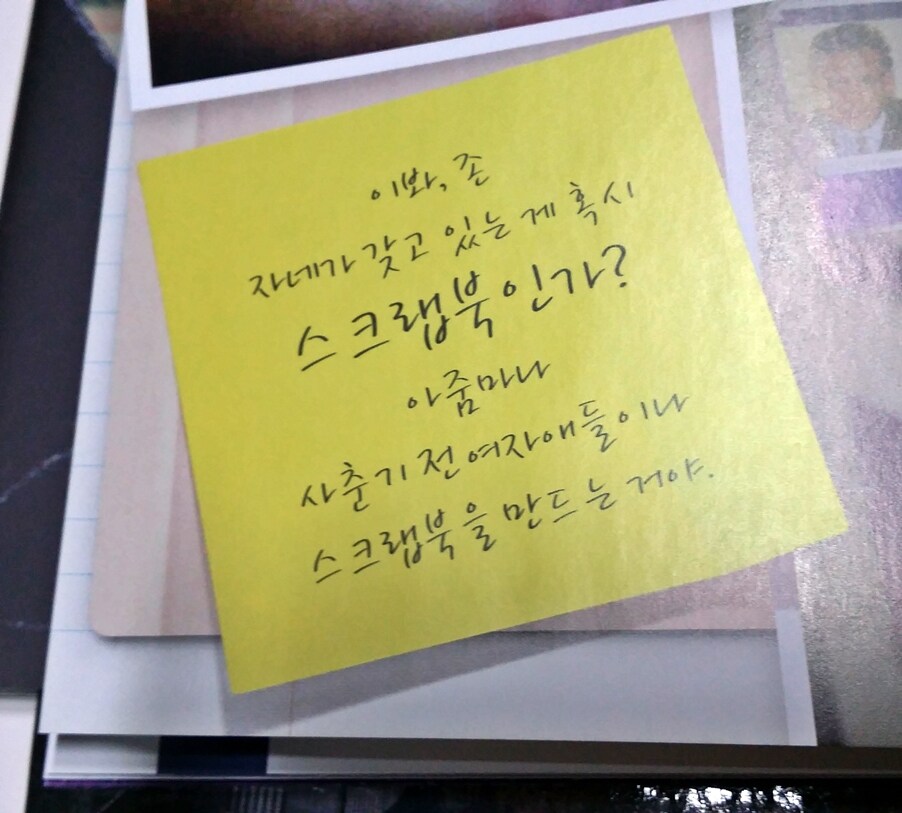 이봐, 존
자네가 갖고 있는 게 혹시
스크랩북인가?
아줌마나
사춘기 전 여자애들이나
스크랩북을 만드는 거야.